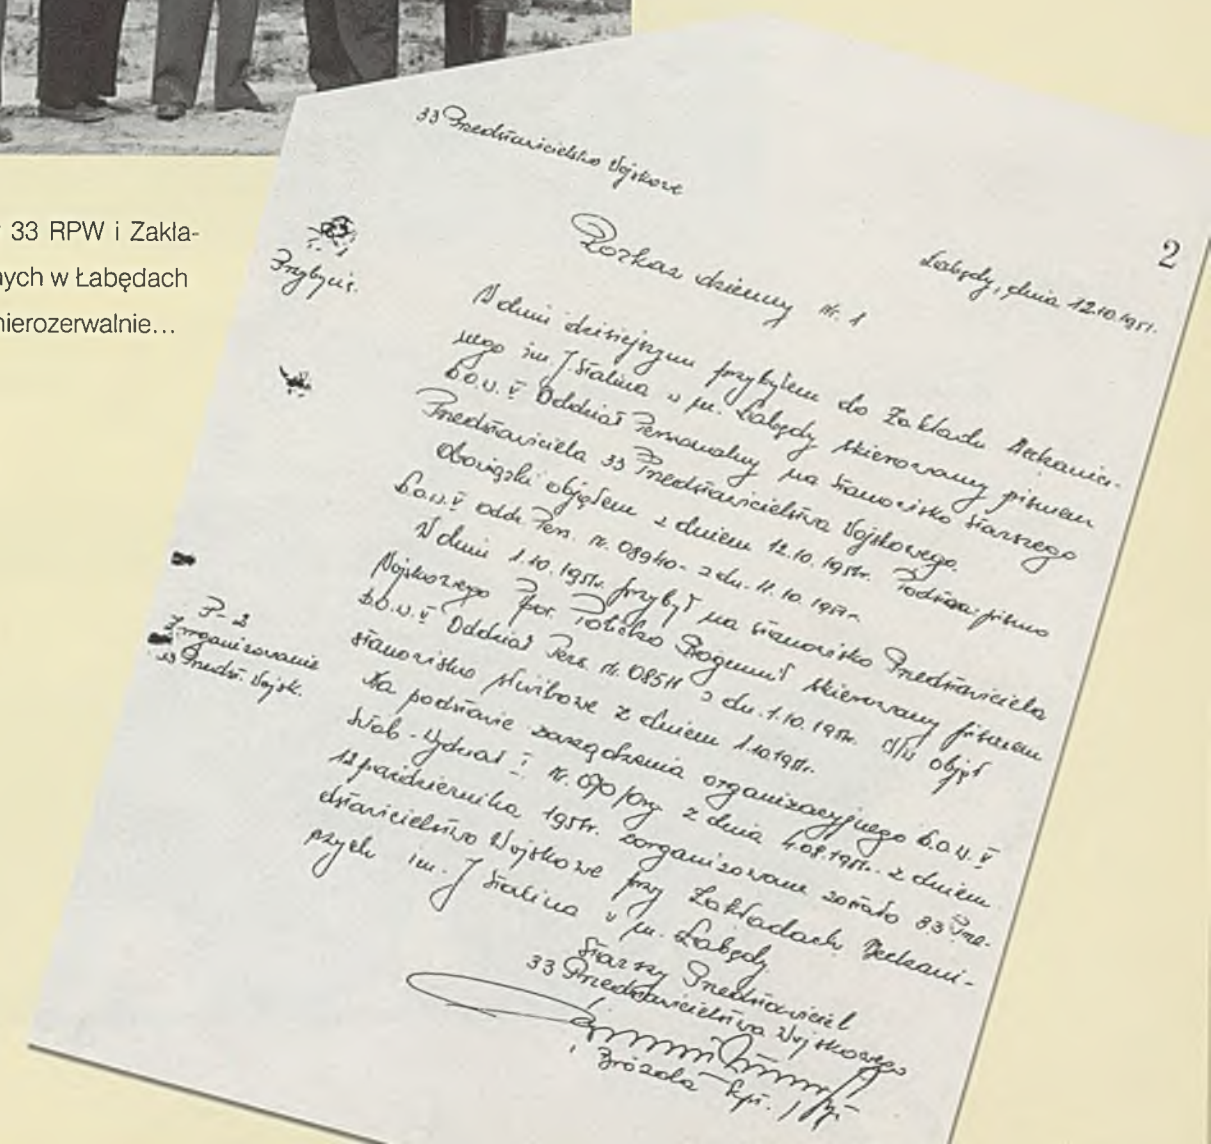 33 RPW i Zakła-
nych w Łabędach
nierozerwalnie...
33 Przedstawicielstwo Wojskowe
2
Łabędy, dnia 12.10.1951.
Rozkaz dzienny nr. 1
Przybycie.
W dniu dzisiejszym przybyłem do Zakładu Mechanicz-
nego im. J Stalina w m. Łabędy skierowany pismem
D.O.W. V Oddział Personalny na stanowisko starszego
Przedstawiciela 33 Przedstawicielstwa Wojskowego.
Obowiązki objąłem z dniem 12.10.1951r. Podstawa: pismo
D.O.W. V oddz. Pers. nr. 08940 z dn. 11.10.1951r.
W dniu 1.10.1951r. przybył na stanowisko Przedstawiciela
Wojskowego por. Bogumił skierowany pismem
D.O.W. V Oddział Pers. nr. 08511 z dn. 1.10.1951r. W/w objął
stanowisko służbowe z dniem 1.10.1951r.
P-2
Zorganizowanie
33 Przedst. Wojsk.
Na podstawie zarządzenia organizacyjnego D.O.W. V
Sztab - Wydział I nr. 070/org z dnia 4.08.1951r. z dniem
12 października 1951r. zorganizowane zostało 33 Prze-
dstawicielstwo Wojskowe przy Zakładach Mechani-
cznych im. J Stalina w m. Łabędy
Starszy Przedstawiciel
33 Przedstawicielstwa Wojskowego
kpt.